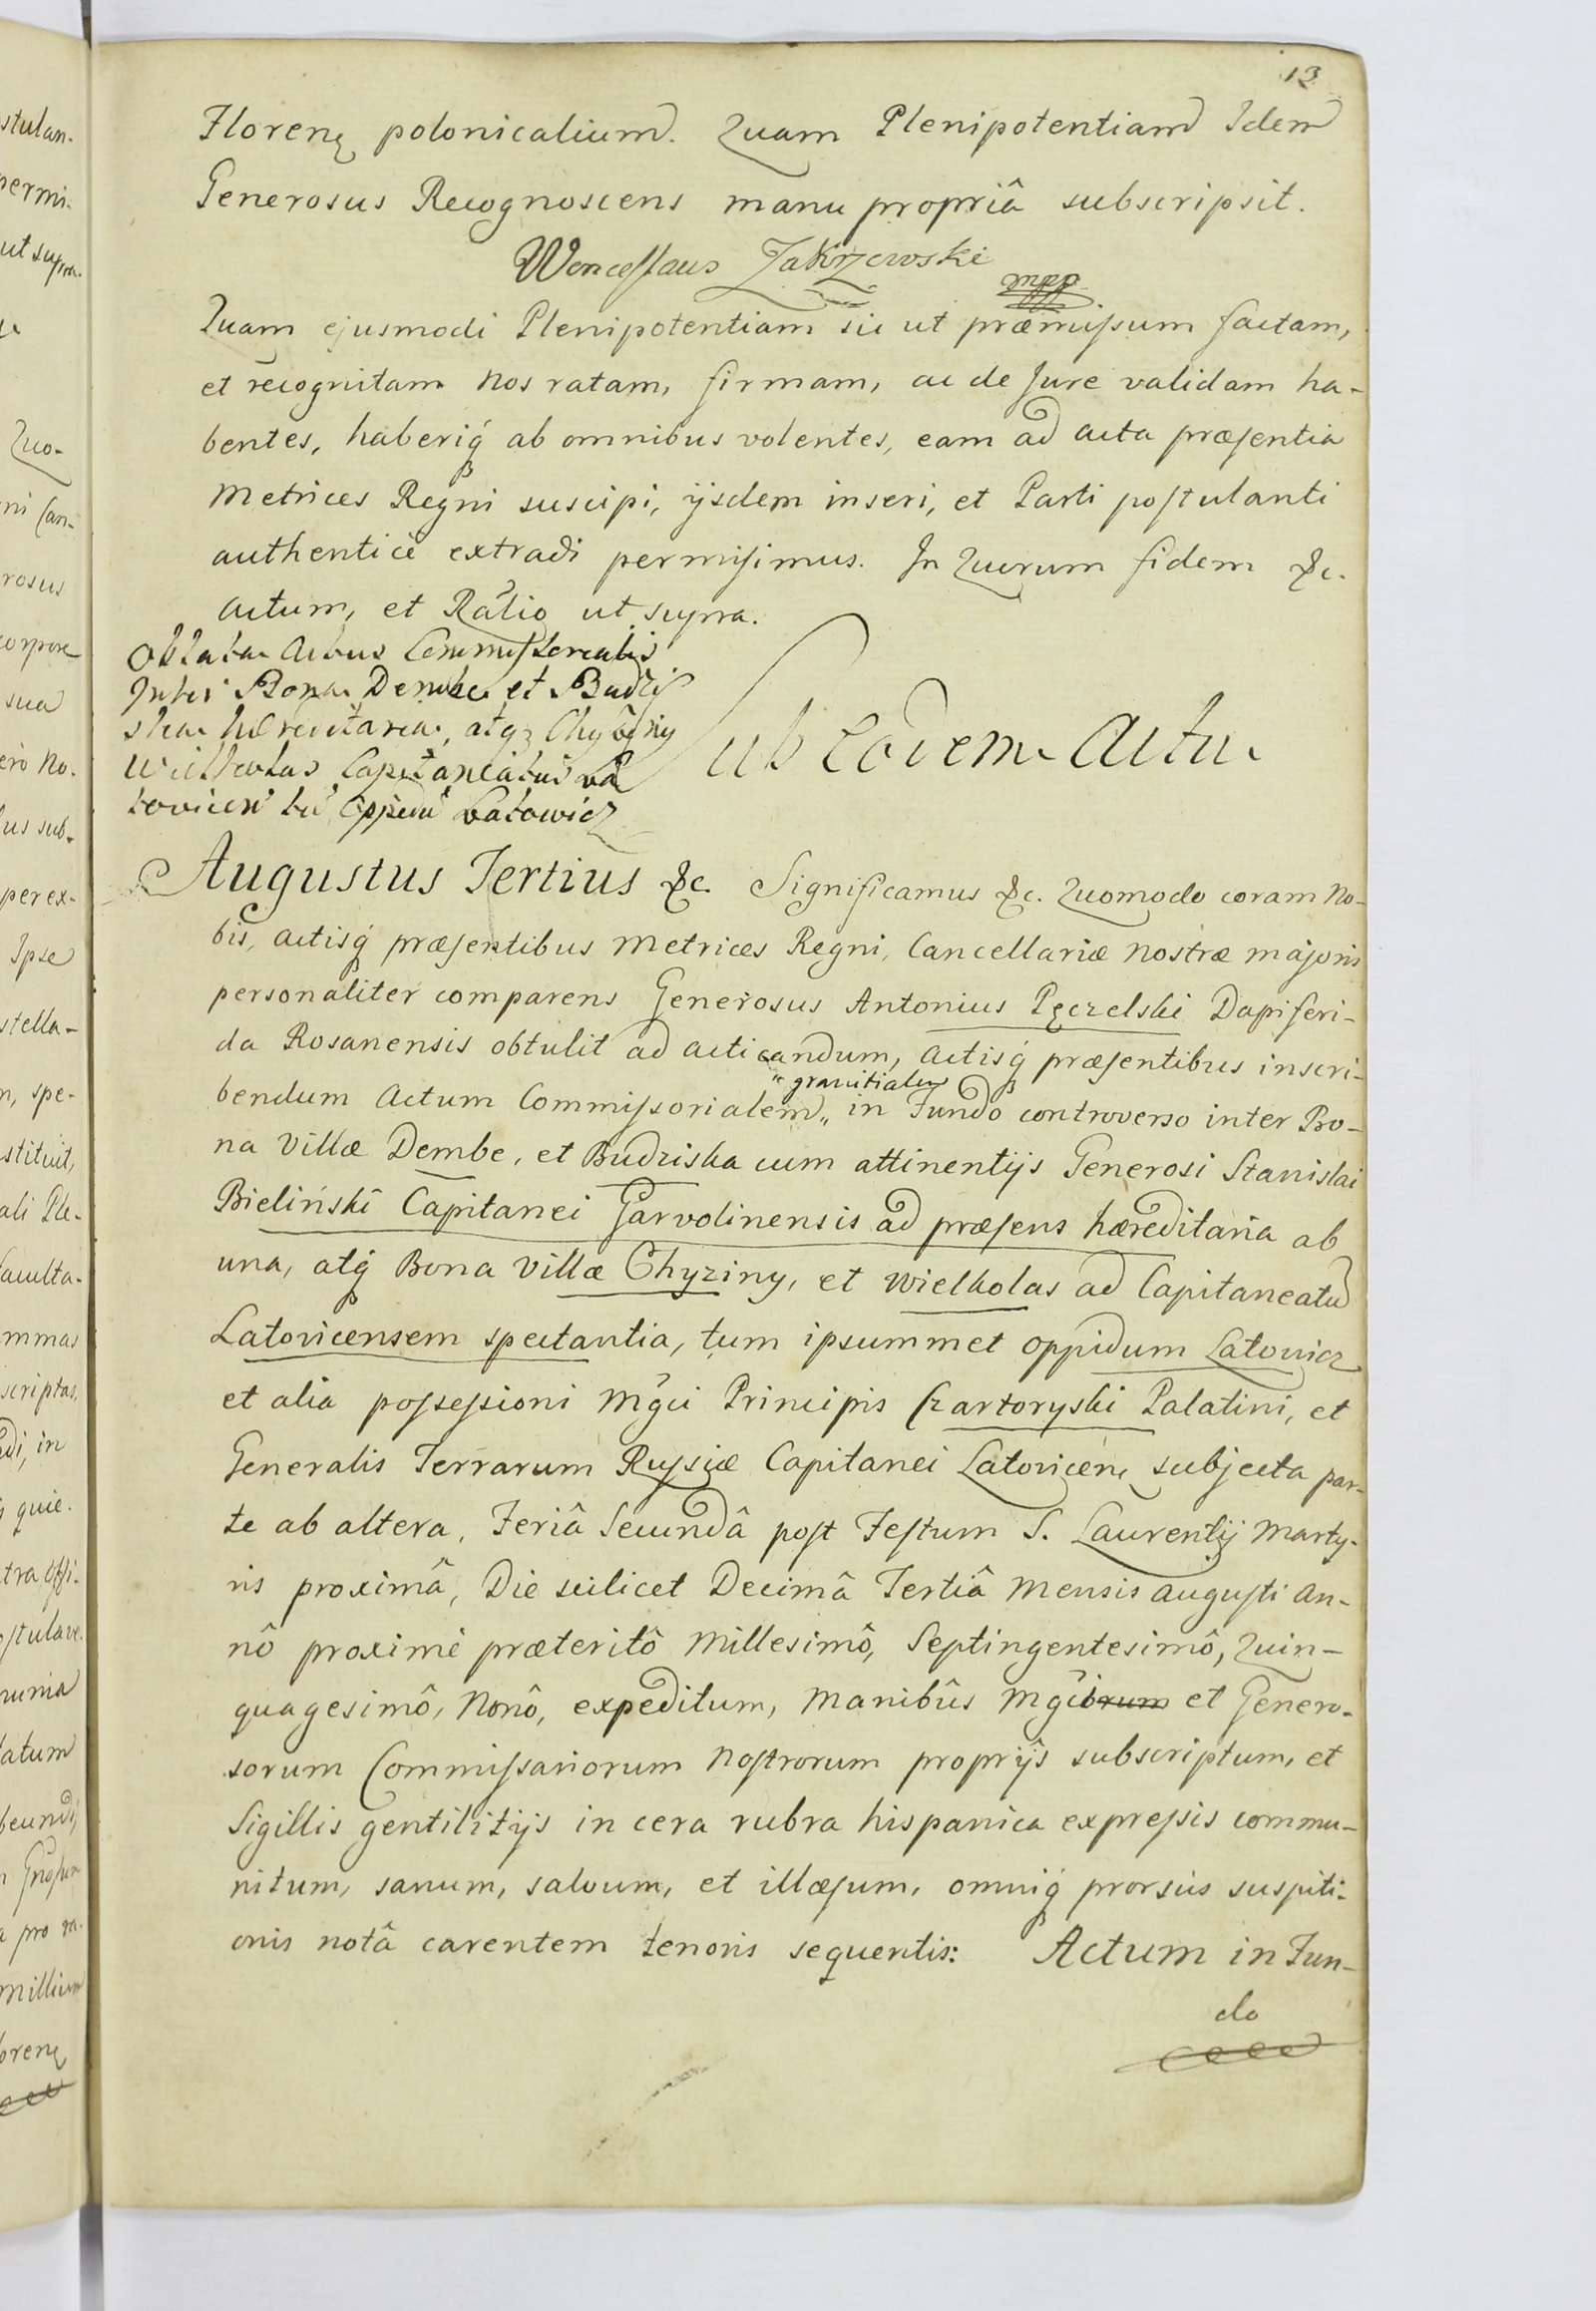 13
Florenę polonicalium. Quam Plenipotentiam Idem
Generosus Recognoscens manu propriâ subscripsit.
Wenceslaus Zakrzewski mpp
Quam ejusmodi Plenipotentiam sic ut præmissum factam,
et recognitam Nos ratam, firmam, ac de Jure validam ha-
bentes, haberiq́ ab omnibus volentes, eam ad acta præsentia
Metrices Regni suscipi, ijsdem inseri, et Parti postulanti
authenticè extradi permisimus. In Quorum fidem &c.
Actum, et Ra͠tio ut supra.
Oblata Actus Commissorialis
Inter Bona Dembe et Budzi
ska hæreditaria, atqz Chyżyny
Wielkolas Capitaneatus La
tovicen tu͠ Oppidu͠ Latowicz
Sub Eodem Actu
Augustus Tertius &c. Significamus &c. Quomodo coram No-
bis, actisq́ præsentibus Metrices Regni, Cancellariæ Nostræ majoris
personaliter comparens Generosus Antonius Pęczelski Dapiferi-
da Rosanensis obtulit ad acticandum, actisq́ præsentibus inscri-
bendum Actum Commissorialem „ granitialem in Fundo controverso inter Bo-
na Villæ Dembe, et Budziska cum attinentijs Generosi Stanislai
Bieliński Capitanei Garvolinensis ad præsens hæreditaria ab
una, atq́ Bona Villæ Chyziny, et Wielkolas ad Capitaneatu͠
Latovicensem spectantia, tum ipsummet oppidum Latowicz
et alia possessioni Mg͠ci Principis Czartoryski Palatini, et
Generalis Terrarum Russiæ Capitanei Latovicenę subjecta par-
te ab altera, Feriâ Secundâ post Festum S. Laurentij Marty-
ris proximâ, Die scilicet Decimâ Tertiâ Mensis Augusti An-
nô proximè præteritô Millesimô, Septingentesimô, Quin-
quagesimô, Nonô, expeditum, Manibûs Mg͠cibrum et Genero-
sorum Commissariorum Nostrorum proprijs subscriptum, et
Sigillis gentilitijs in cera rubra hispanica expressis commu-
nitum, sanum, salvum, et illæsum, omniq́ prorsùs suspiti-
onis notâ carentem tenoris sequentis: Actum in Fun-
do